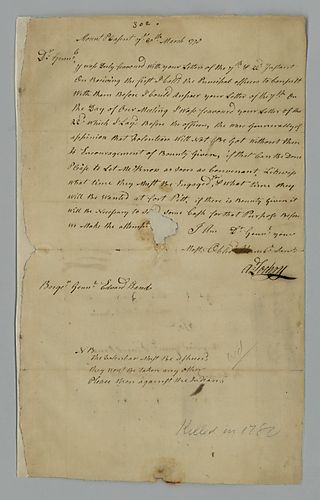 302.
Mount Plesent ye 30th March 1778
Dr Genrl
I was Duly favoured with your Letters of the 7th & 22d Instant
On Receiving the first I Calld the Principal officers to Consult
With them Before I Could Answer your Letter of the 7th On
the Day of Our Meeting I Was favoured your Letter of the
22d which I Layd Before the officers, the Ware Generally of
oppinion that Volenteers Will Not Be Got without there
Is Encouragement of Bounty Given, if that Can Be Done
Please to Let Me Know as soon as Convenant, Likewise
What time they Must Be Engaged for & What time they
Will Be Wanted at fort Pitt, if there is Bounty Given it
Will Be Necessary to Some Cash for that Purpose Before
We Make the attempt
I Am Dr Genrl your
Most Obd Humble Servt
A Lochry
Bergd Genrl Edward Hand
N B
the Volunteer Must the officers
they Wont be taken any other
Please then against the Indians
Killed in 1782